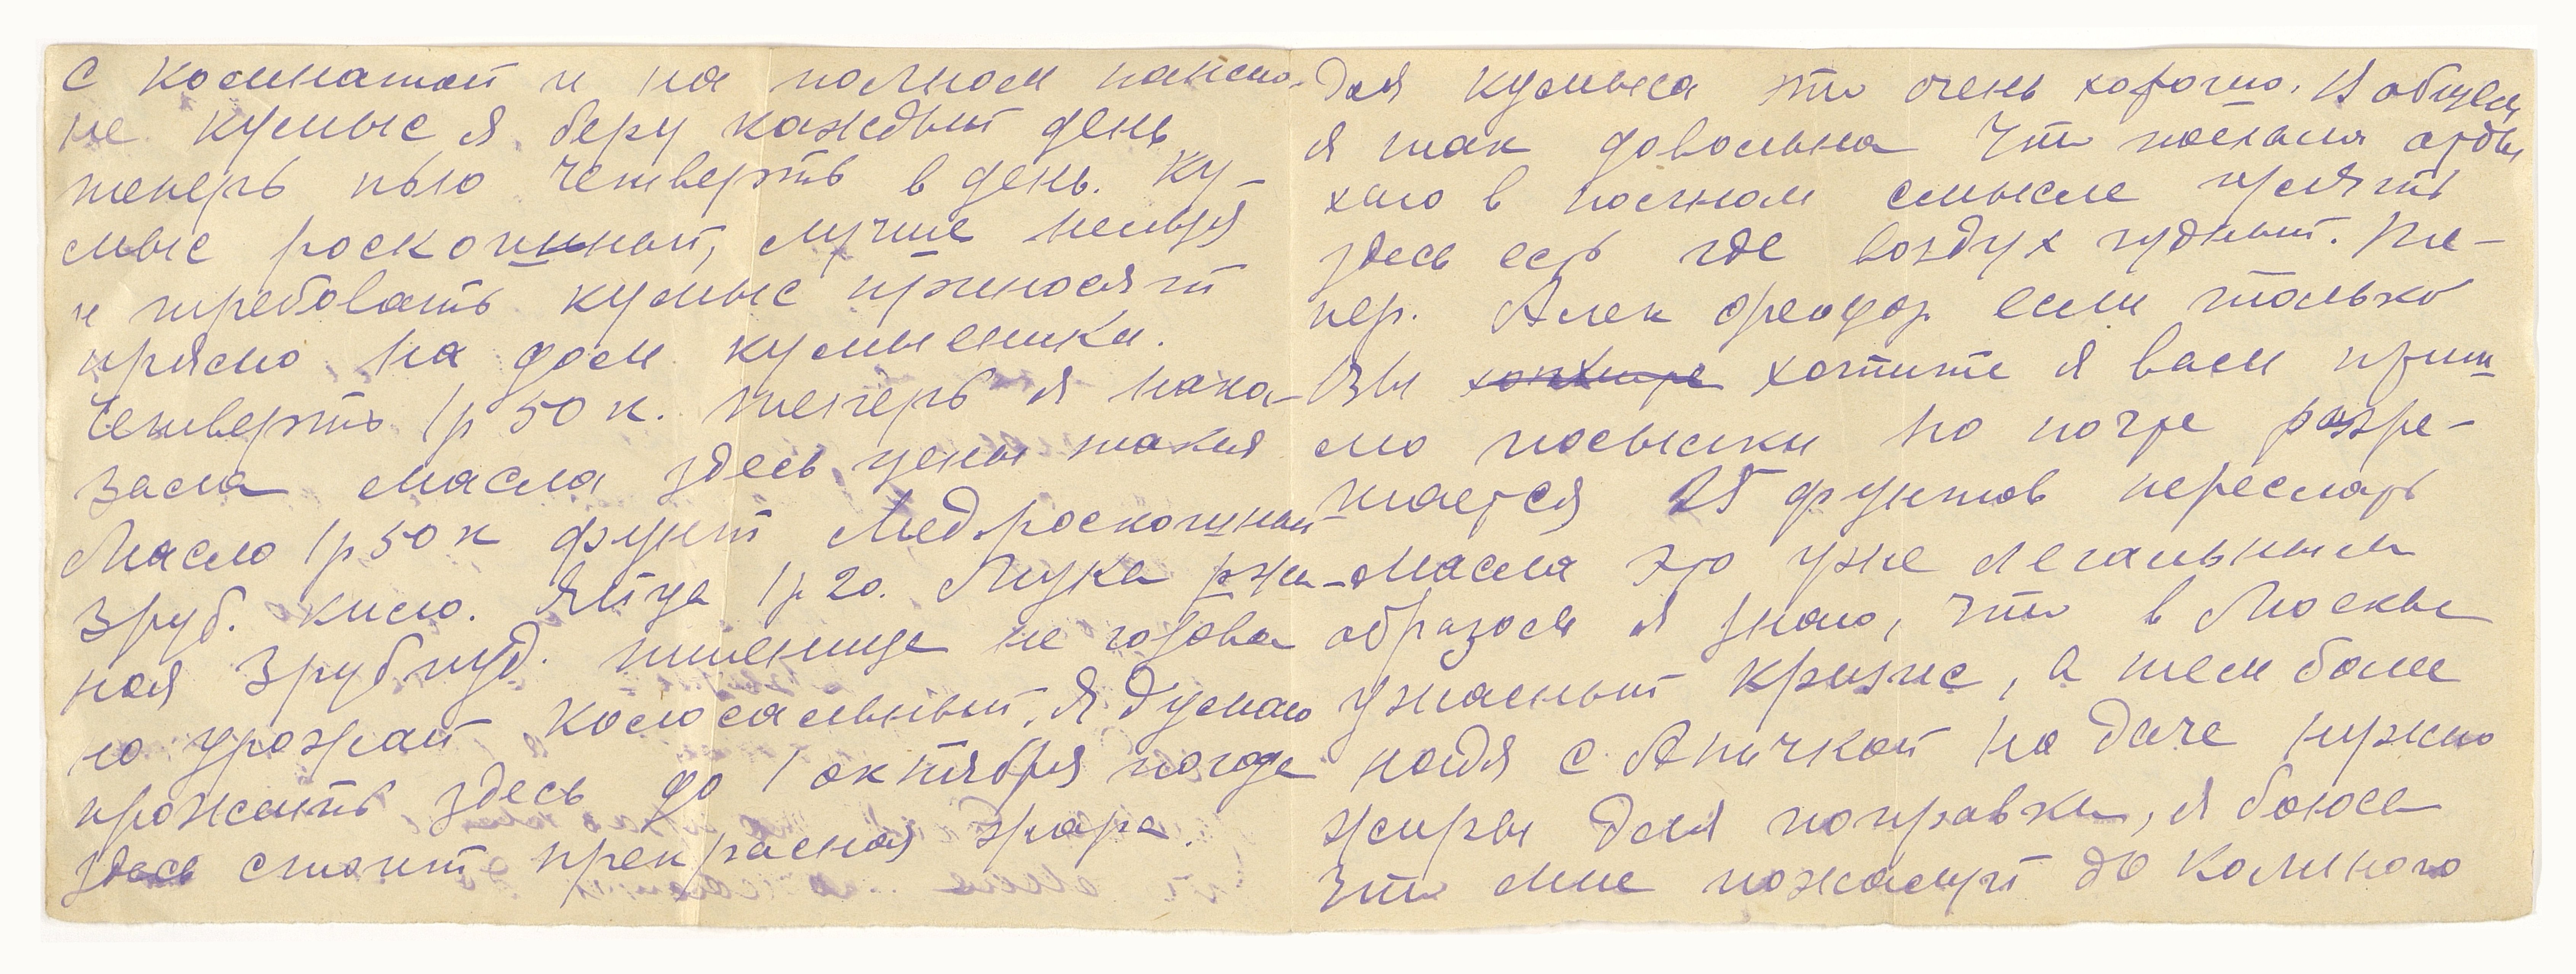 с комнатой и на полном пансио-
не кумыс я беру каждый день
теперь пью четверть в день. Ку-
мыс роскошный, лучше нельзя
и требовать кумыс приносят
прямо на дом кумысники.
Четверть 1р 50 к. теперь я нака-
зала масла здесь цены такия
Масло 1р 50 к фунт Мед роскошный
3 руб. кило. Яйца 1р 20. Мука ржа-
ная 3 руб пуд. пшеница не готова
но урожай колосальный. Я думаю
прожить здесь до 1 октября погода
здесь стоит прекрасная жара.
для кумыса это очень хорошо. В общем
я так довольна что поехала отды
хаю в полном смысле
здесь есть где воздух чудный. Те-
пер. Алек Феодор если только
Вы хотите я вам приш-
лю посылки по почте разре-
шается 25 фунтов переслать
масла это уже легальным
образом я знаю, что в Москве
ужасный кризис, а тем боле
Надя с Аничкой на даче нужно
жиры для поправки, я боюсь
что мне пожалуй до Колиного